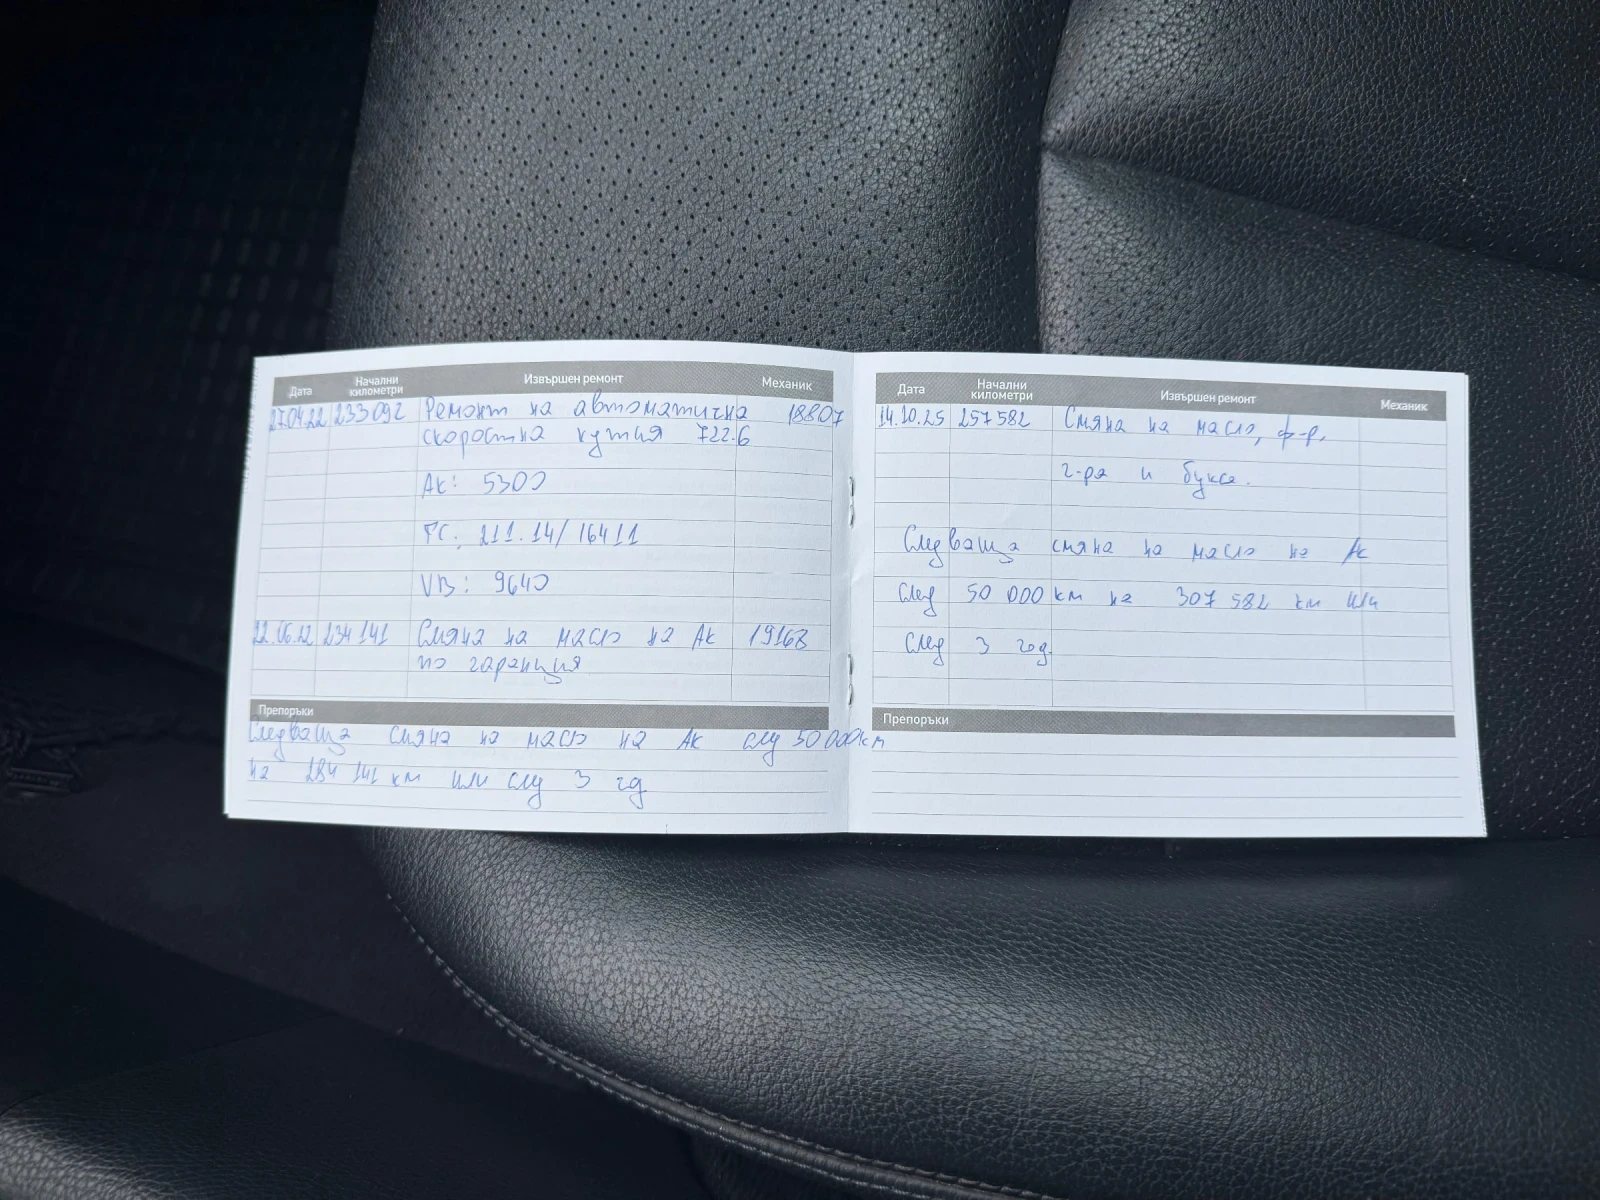 Дата Начални километри Извършен ремонт Механик
27.04.22 233 092 Ремонт на автоматична 18807
скоростна кутия 722.6
Ак: 5300
ТС: 211.14/16411
VB: 9640
22.06.22 234 141 Смяна на масло на Ак 19168
по гаранция
Препоръки
Следваща смяна на масло на Ак след 50 000 км
на 284 141 км или след 3 год
Дата Начални километри Извършен ремонт Механик
14.10.25 257 582 Смяна на масло, ф-р,
г-ря и букса.
Следваща смяна на масло на Ак
след 50 000 км на 307 582 км или
след 3 год.
Препоръки